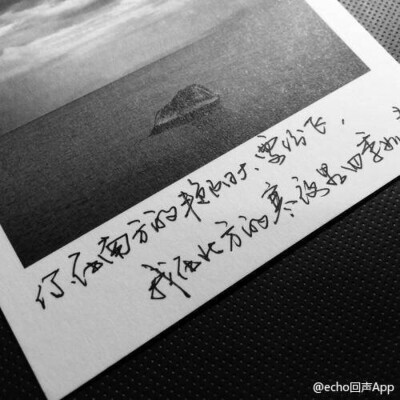 你在南方的艳阳大雪纷飞，
我在北方的寒夜里四季如
@echo回声App